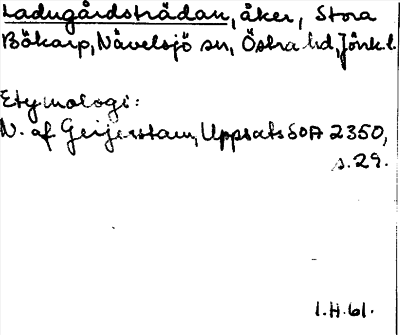 Ladugårdsträdan, åker, Stora
Bökarp, Nävelsjö sn, Östra hd, Jönk. l.
Etymologi:
N. af Geijerstam, Uppsats SOA 2350,
s. 29.
I.H. 61.